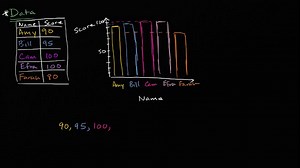 Data
Name Score
Amy 90
Bill 95
Cam 100
Efra 100
Farah 80
Score
100
50
Amy Bill Cam Efra Farah
Name
90, 95, 100,